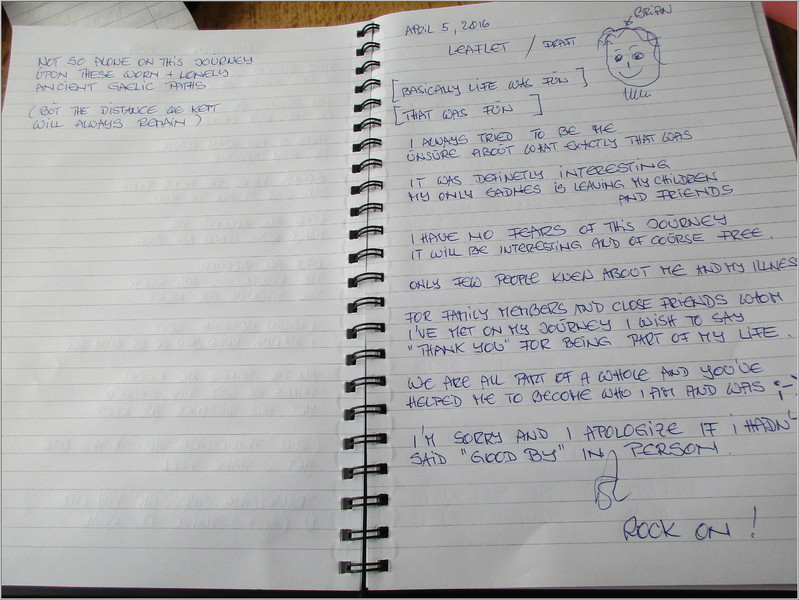 NOT SO ALONE ON THIS JOURNEY
UPON THESE WORN + LONELY
ANCIENT GAELIC PATHS
(BUT THE DISTANCE WE KEPT
WILL ALWAYS REMAIN)
APRIL 5, 2016
BRIAN
LEAFLET / DRAFT
[BASICALLY LIFE WAS FUN]
[THAT WAS FUN]
I ALWAYS TRIED TO BE ME
UNSURE ABOUT WHAT EXACTLY THAT WAS
IT WAS DEFINETLY INTERESTING
MY ONLY SADNES IS LEAVING MY CHILDREN
AND FRIENDS
I HAVE NO FEARS OF THIS JOURNEY
IT WILL BE INTERESTING AND OF COURSE FREE.
ONLY FEW PEOPLE KNEW ABOUT ME AND MY ILLNESS
FOR FAMILY MEMBERS AND CLOSE FRIENDS WHOM
I'VE MET ON MY JOURNEY I WISH TO SAY
"THANK YOU" FOR BEING PART OF MY LIFE.
WE ARE ALL PART OF A WHOLE AND YOU'VE
HELPED ME TO BECOME WHO I AM AND WAS ;-)
I'M SORRY AND I APOLOGIZE IF I HADN'
SAID "GOOD BY" IN PERSON.
ROCK ON!